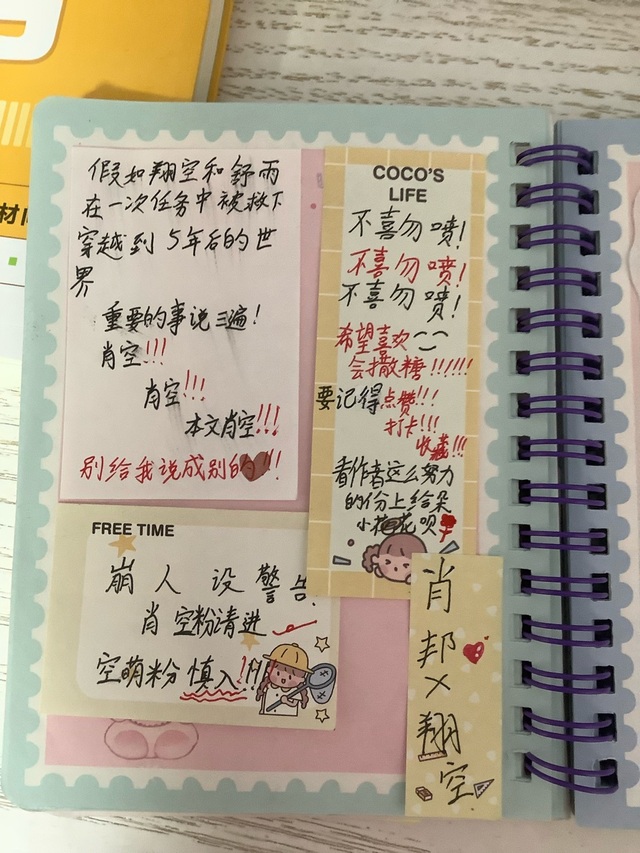 假如翔空和舒雨
在一次任务中被救下
穿越到5年后的世
界
重要的事说三遍!
肖空!!!
肖空!!!
本文肖空!!!
别给我说成别的!!
COCO'S
LIFE
不喜勿喷!
不喜勿喷!
不喜勿喷!
希望喜欢
会撒糖!!!!!!
要记得点赞!!!
打卡!!!
收藏!!!
看作者这么努力
的份上给朵
小花呗
FREE TIME
崩人设警告
肖空粉请进
空萌粉慎入!!!
肖
邦
×
翔
空